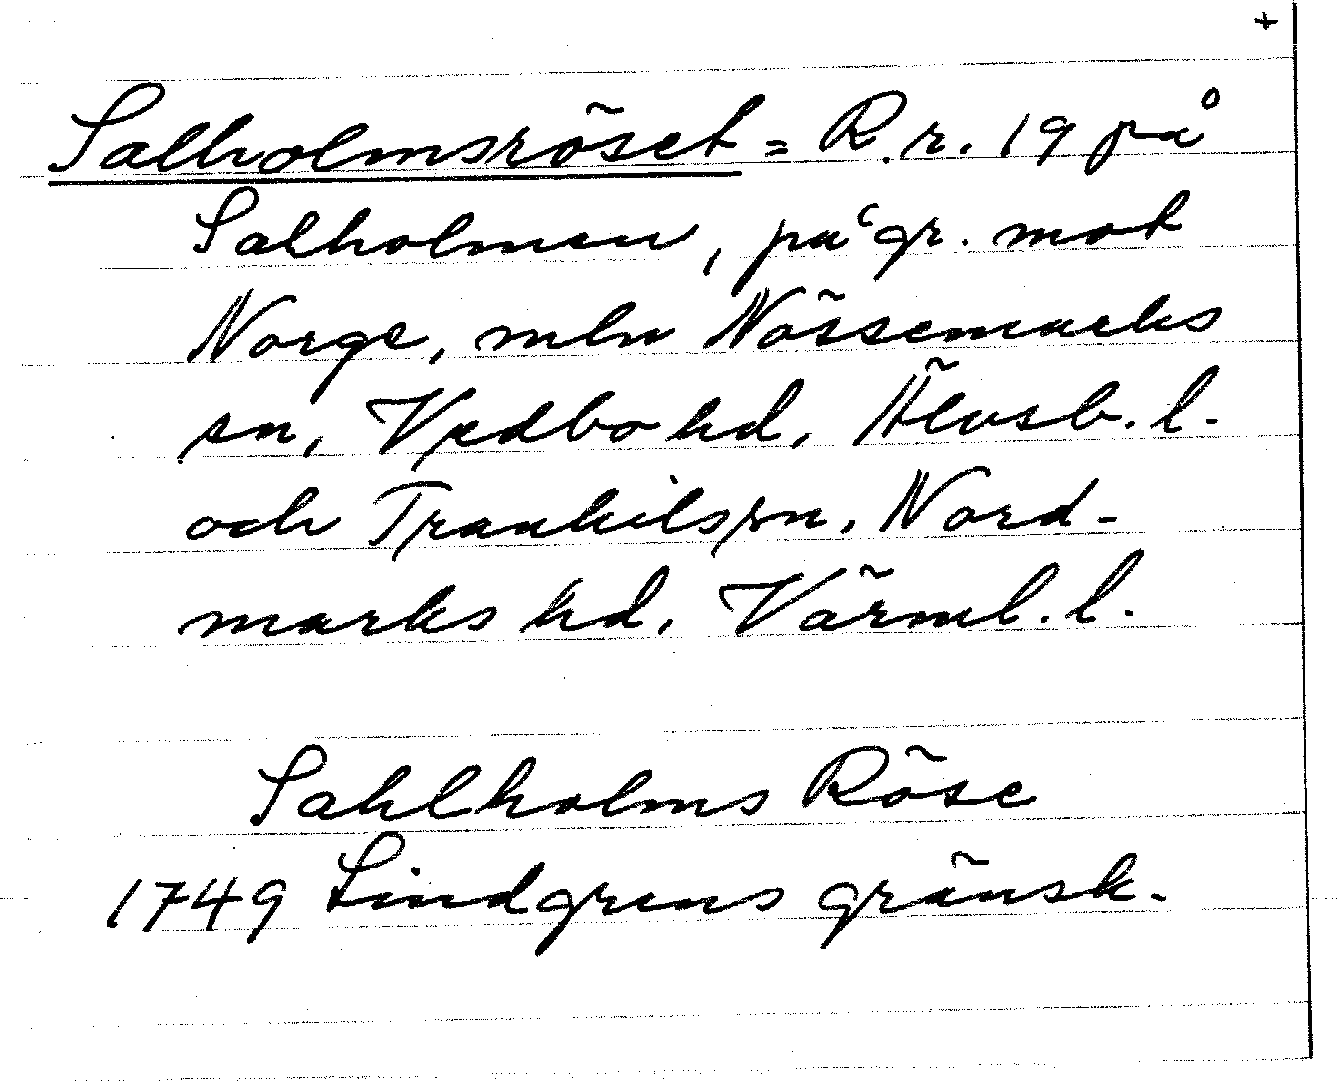 +
Salholmsröset = R.r. 19 på
Salholmen, på gr. mot
Norge, mln Nössemarks
sn, Vedbo hd, Älvsb. l.
och Trankils sn, Nord-
marks hd, Värml. l.
Sahlholms Röse
1749 Lindgrens gränsk.